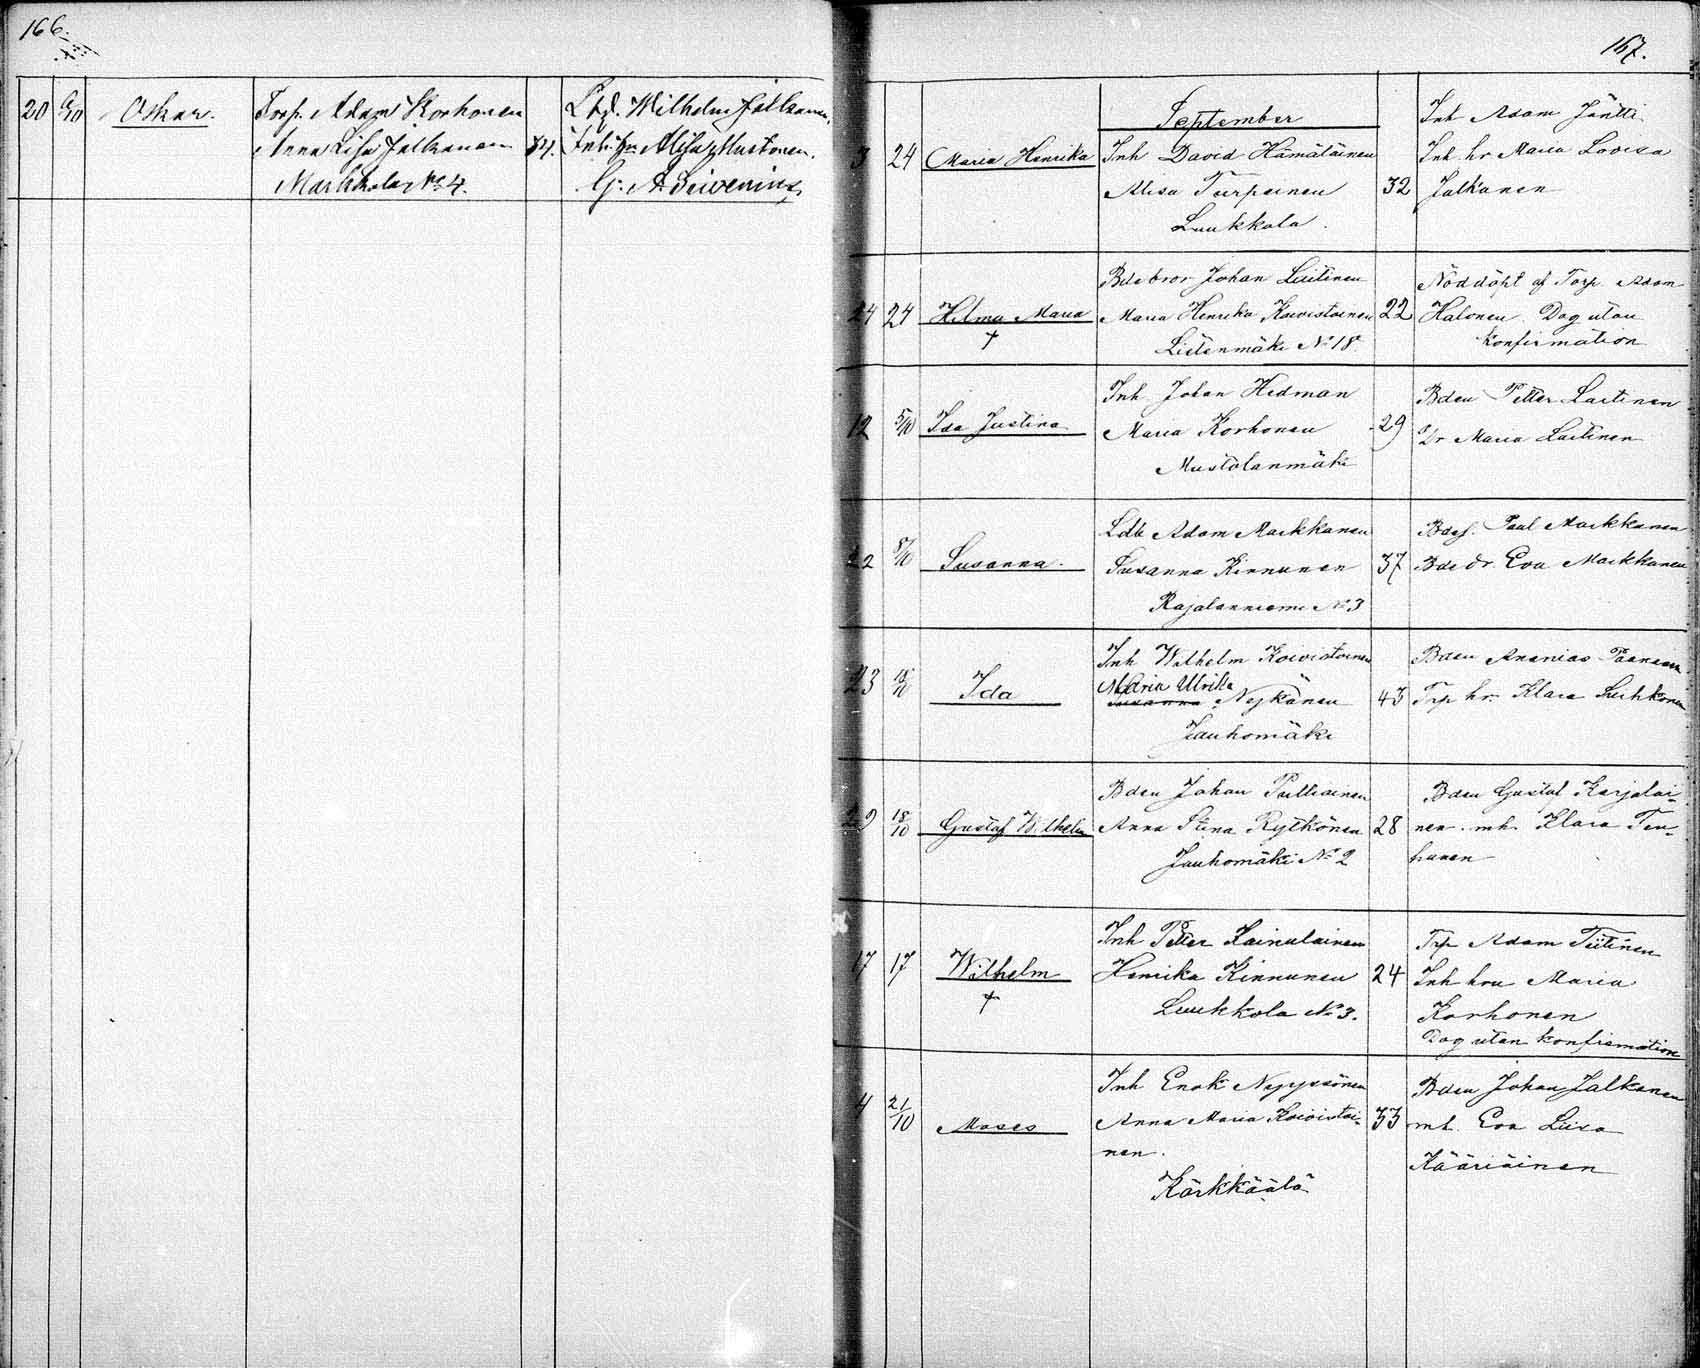 166.
20 Oskar. Torp. Adam Korhonen
Anna Lisa Jalkanen 34.
Markkala No 4.
Wilhelm Jalkanen,
Mustonen.
G. A.
167.
September
3 24 Maria Henrika Inh David Hämäläinen 32 Inh Adam Jäntti
Alisa Turpeinen Inh. hr Maria Lovisa
Luukkala. Jalkanen
24 24 Hilma Maria Bdebror Johan Laitinen 22 Nöddöpt af Torp Adam
† Maria Henrika Koivistoinen Halonen. Dog utan
Lietenmäki No 18. Konfirmation
12 5/10 Ida Justina Inh Johan Hedman 29 Bden Petter Laitinen
Maria Korhonen Dr Maria Laitinen
Mustolanmäki
22 8/10 Susanna. Ldb Adam Markkanen 37 Bdes. Paul Markkanen
Susanna Kinnunen Bde dr. Eva Markkanen
Rajalanniemi No 3
23 18/10 Ida Inh Wilhelm Koivistoinen 43 Bden Ananias Paananen
Maria Ulrika
Susanna Nykänen Trp hr. Klara Suhkonen
Jauhomäki
29 18/10 Gustaf Wilhelm Bden Johan Pulliainen 28 Bden Gustaf Karjalai-
Anna Stina Rytkönen nen. mh. Klara Ten-
Jauhomäki No 2 hunen
17 17 Wilhelm Inh Petter Kainulainen 24 Trp Adam Tiitinen
† Henrika Kinnunen Inh hru Maria
Luukkola No 3. Korhonen
Dog utan konfirmation
4 21/10 Moses Inh Enok Nyyssönen 33 Bden Johan Jalkanen
Anna Maria Koivistoi- mh. Eva Liisa
nen. Kääriäinen
Kärkkäälä